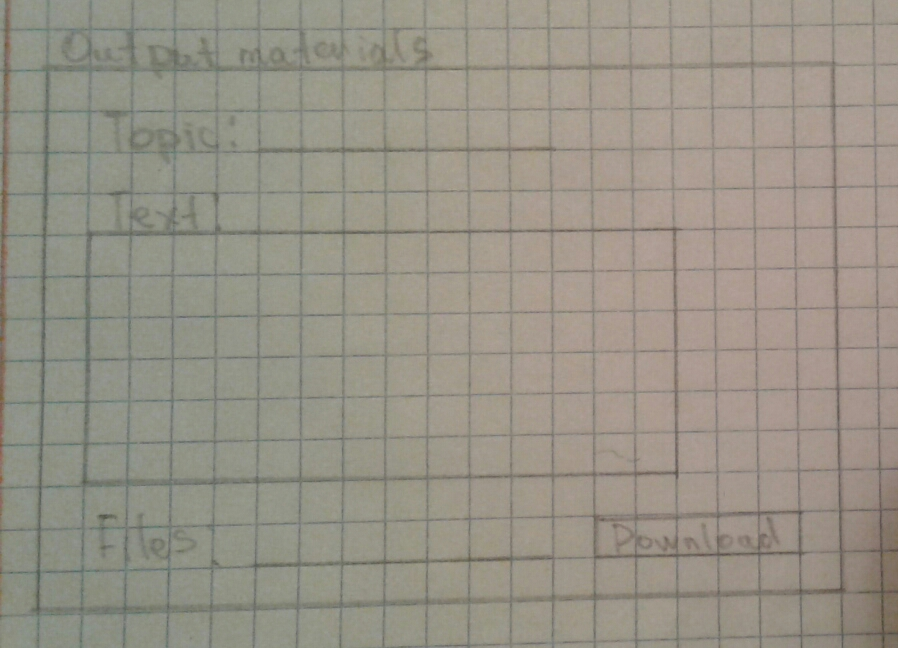 Output materials
Topic:
Text:
Files:
Download